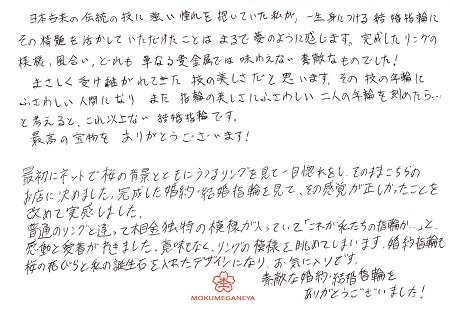 日本古来の伝統の技に強い憧れを抱いていた私が、一生身につける結婚指輪に
その精髄を活かしていただけたことはまるで夢のように感じます。完成したリングの
模様、風合い、どれも単なる貴金属では味わえない素敵なものでした！
まさしく受け継がれてきた技の美しさだと思います。その技の年輪に
ふさわしい人間になり また 指輪の美しさにふさわしい二人の年輪を刻めたら…
と考えると、これ以上ない結婚指輪です。
最高の宝物を ありがとうございます！
最初にネットで桜の背景とともにうつるリングを見て一目惚れをし、そのままこちらの
お店に決めました。完成した婚約・結婚指輪を見て、その感覚が正しかったことを
改めて実感しました。
普通のリングと違って木目金独特の模様が入っていて「これが私たちの指輪か…」と、
感動と愛着がわきました。意味もなく、リングの模様を眺めてしまいます。婚約指輪も
桜の花びらと私の誕生石を入れたデザインになり、お気に入りです。
素敵な婚約・結婚指輪を
ありがとうございました！
MOKUMEGANEYA